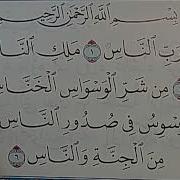 بِسْمِ اللَّهِ الرَّحْمَٰنِ الرَّحِيمِ
بِرَبِّ النَّاسِ ١ مَلِكِ النَّا
مِن شَرِّ الْوَسْوَاسِ الْخَنَّاسِ
سْوِسُ فِي صُدُورِ النَّاسِ
مِنَ الْجِنَّةِ وَالنَّاسِ ٦